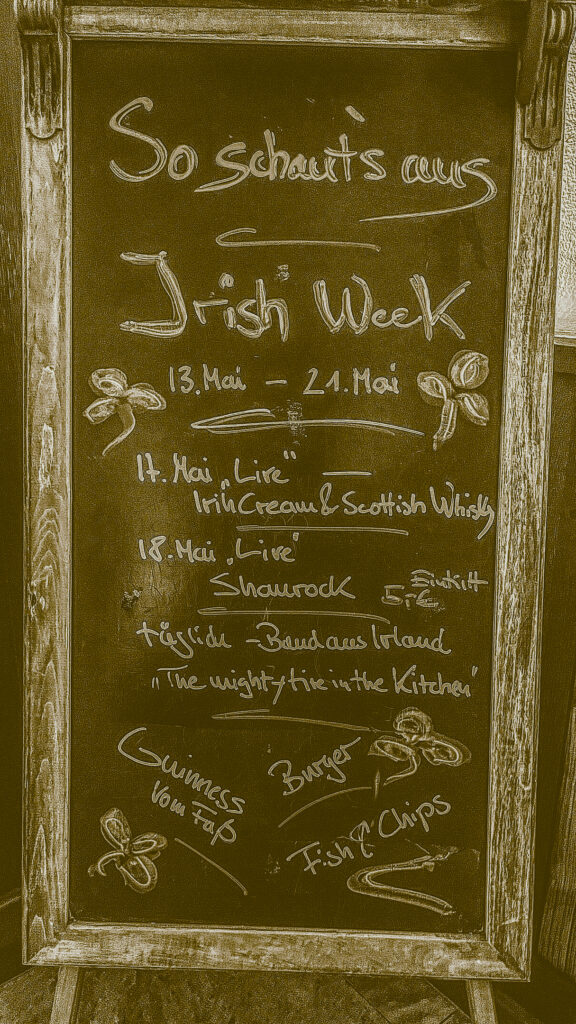 So schaut's aus
Irish Week
13. Mai – 21. Mai
17. Mai „Live" –
„Irish Cream & Scottish Whisky
18. Mai „Live"
Shamrock
Eintritt
5,-€
täglich - Band aus Irland
„The mighty fire in the Kitchen"
Guinness
vom Faß
Burger
Fish & Chips